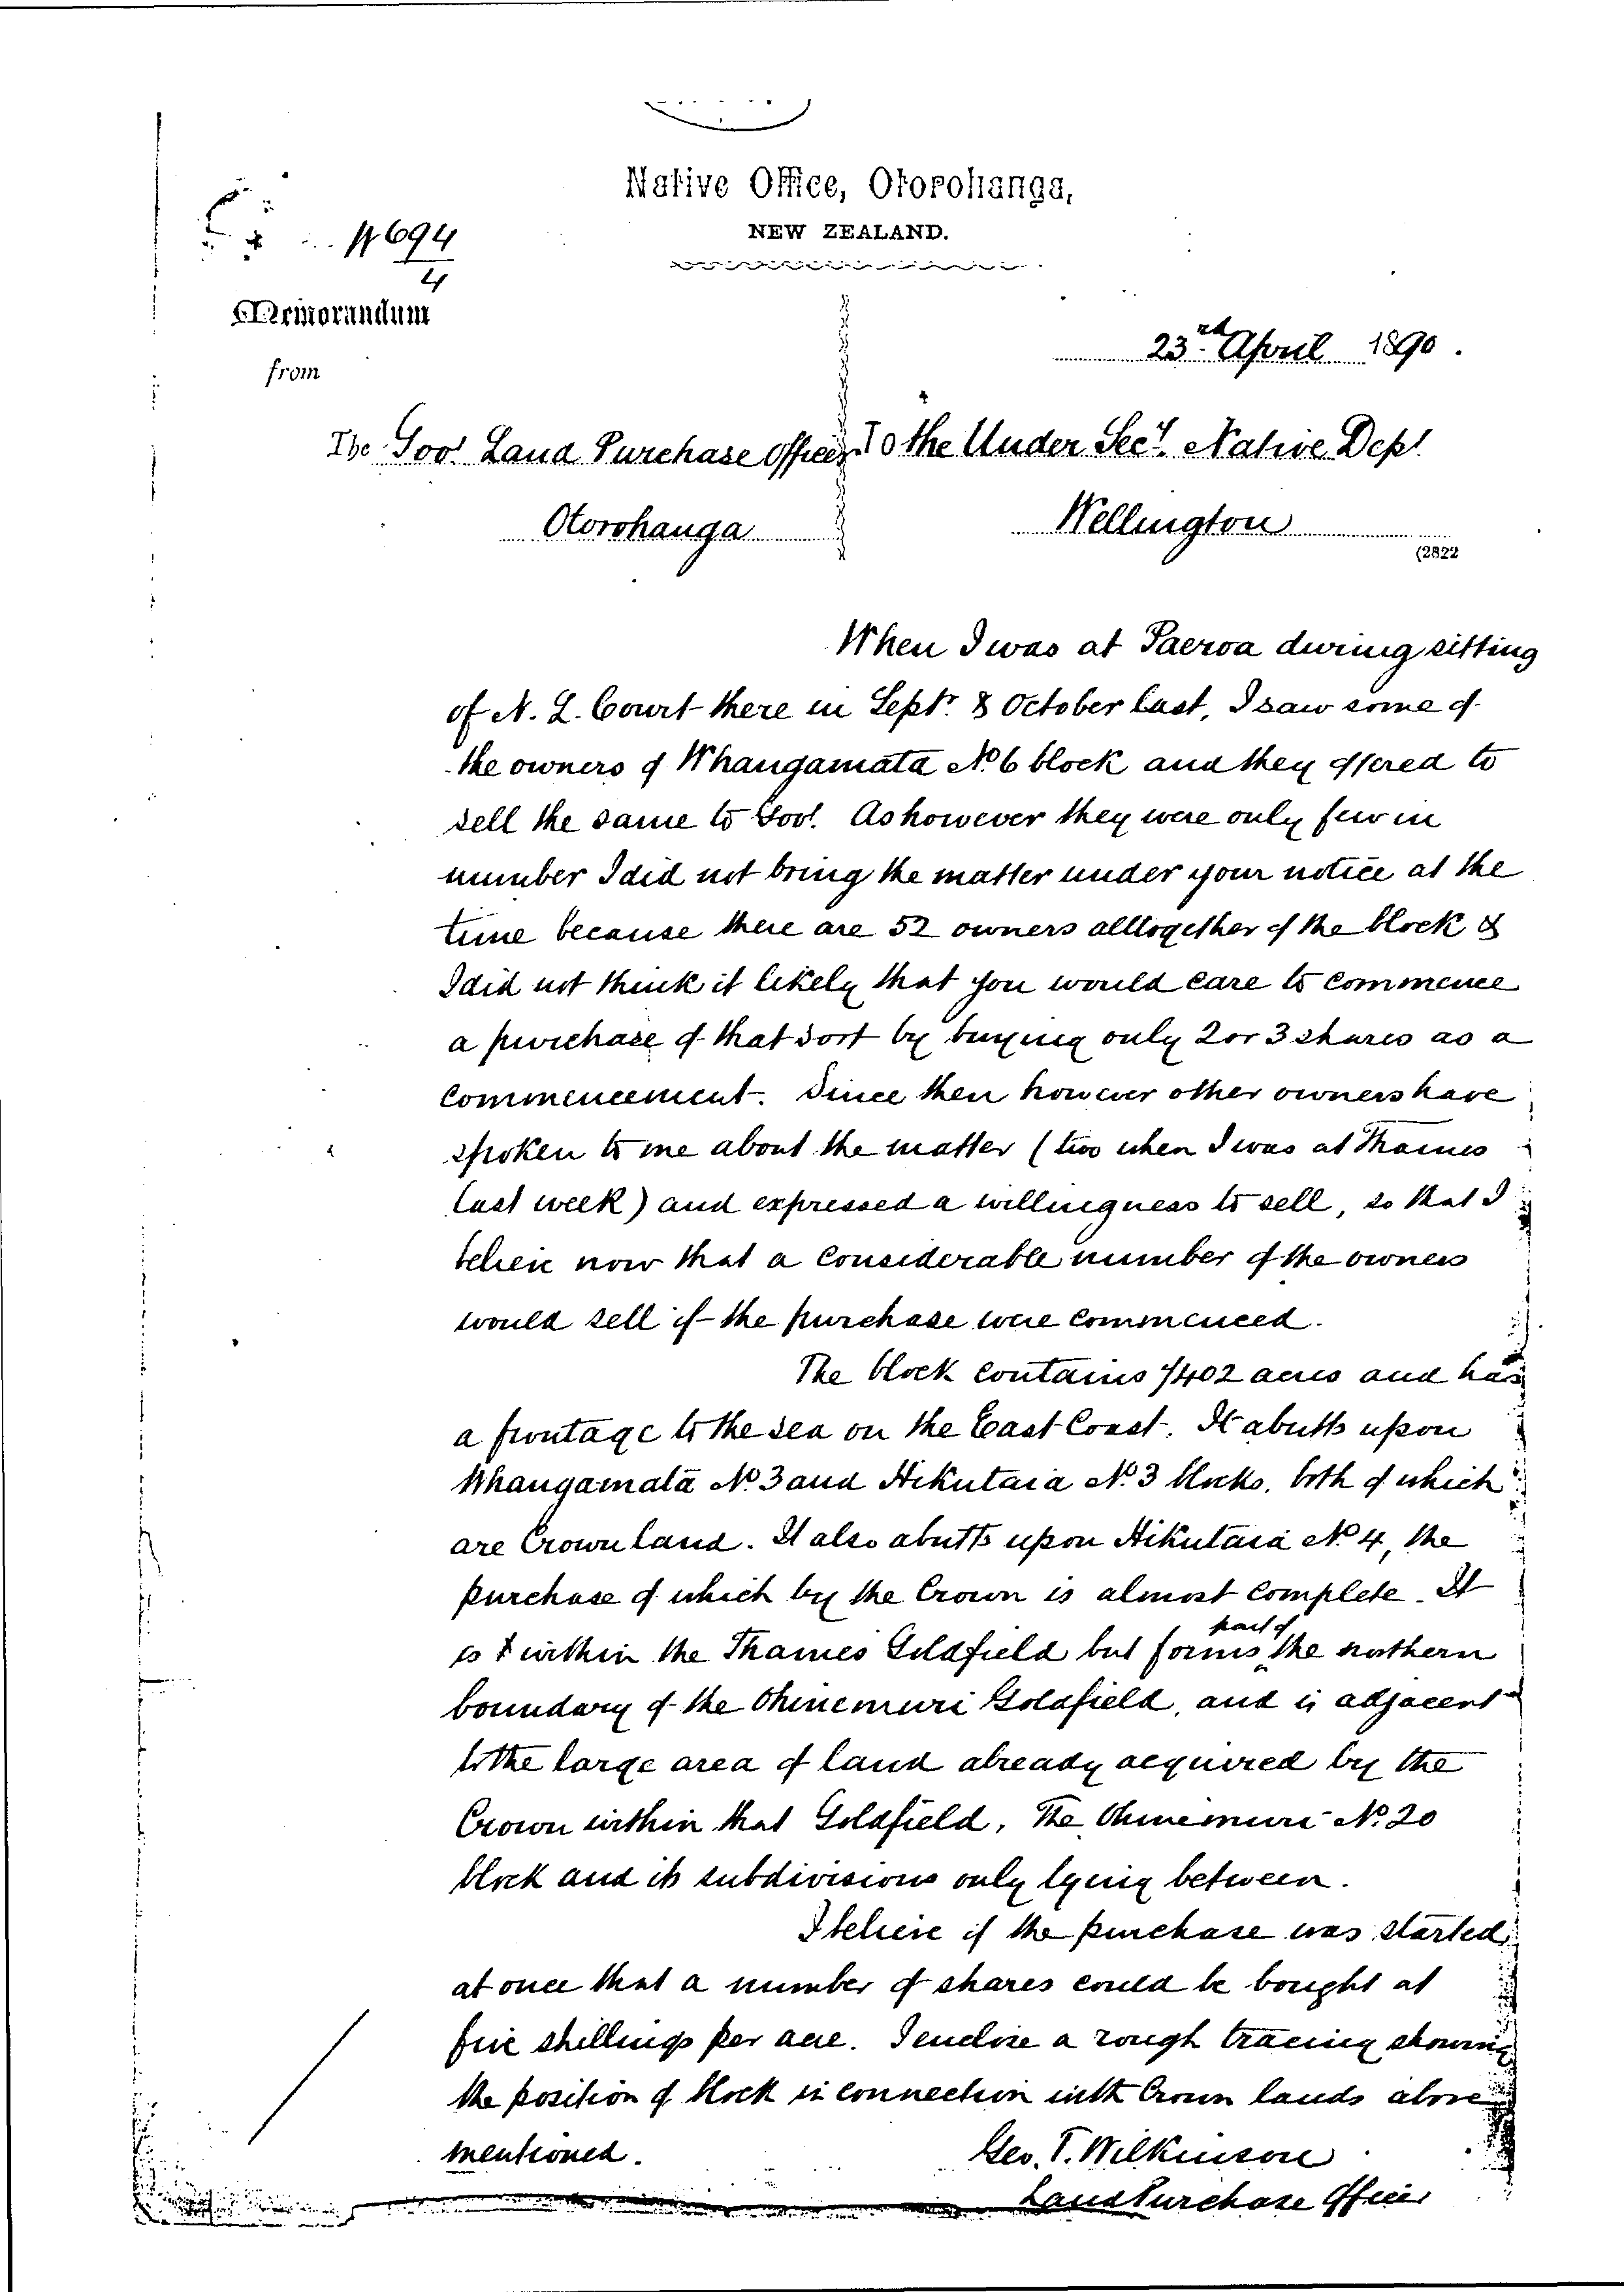 Native Office, Otorohanga,
NEW ZEALAND.
694
4
Memorandum
23rd April 1890.
from
The Govt Land Purchase Officer To the Under Secy. Native Dept
Otorohanga Wellington
(2822
When I was at Paeroa during sitting
of N. L. Court there in Septr. & October last, I saw some of
the owners of Whangamata No. 6 block and they offered to
sell the same to Govt. As however they were only few in
number I did not bring the matter under your notice at the
time because there are 52 owners alltogether of the block &
I did not think it likely that you would care to commence
a purchase of that sort by buying only 2 or 3 shares as a
commencement. Since then however other owners have
spoken to me about the matter (two when I was at Thames
last week) and expressed a willingness to sell, so that I
believe now that a considerable number of the owners
would sell if the purchase were commenced.
The block contains 1402 acres and has
a frontage to the sea on the East Coast. It abutts upon
Whangamata No. 3 and Hikutaia No. 3 blocks, both of which
are Crown land. It also abutts upon Hikutaia No 4, the
purchase of which by the Crown is almost complete. It
is within the Thames Goldfield but forms part of the northern
boundary of the Ohinemuri Goldfield, and is adjacent
to the large area of land already acquired by the
Crown within that Goldfield, the Ohinemuri No. 20
block and its subdivisions only lying between.
I believe if the purchase was started
at once that a number of shares could be bought at
five shillings per acre. I enclose a rough tracing showing
the position of block in connection with Crown lands above
mentioned. Geo. T. Wilkinson
Land Purchase Officer